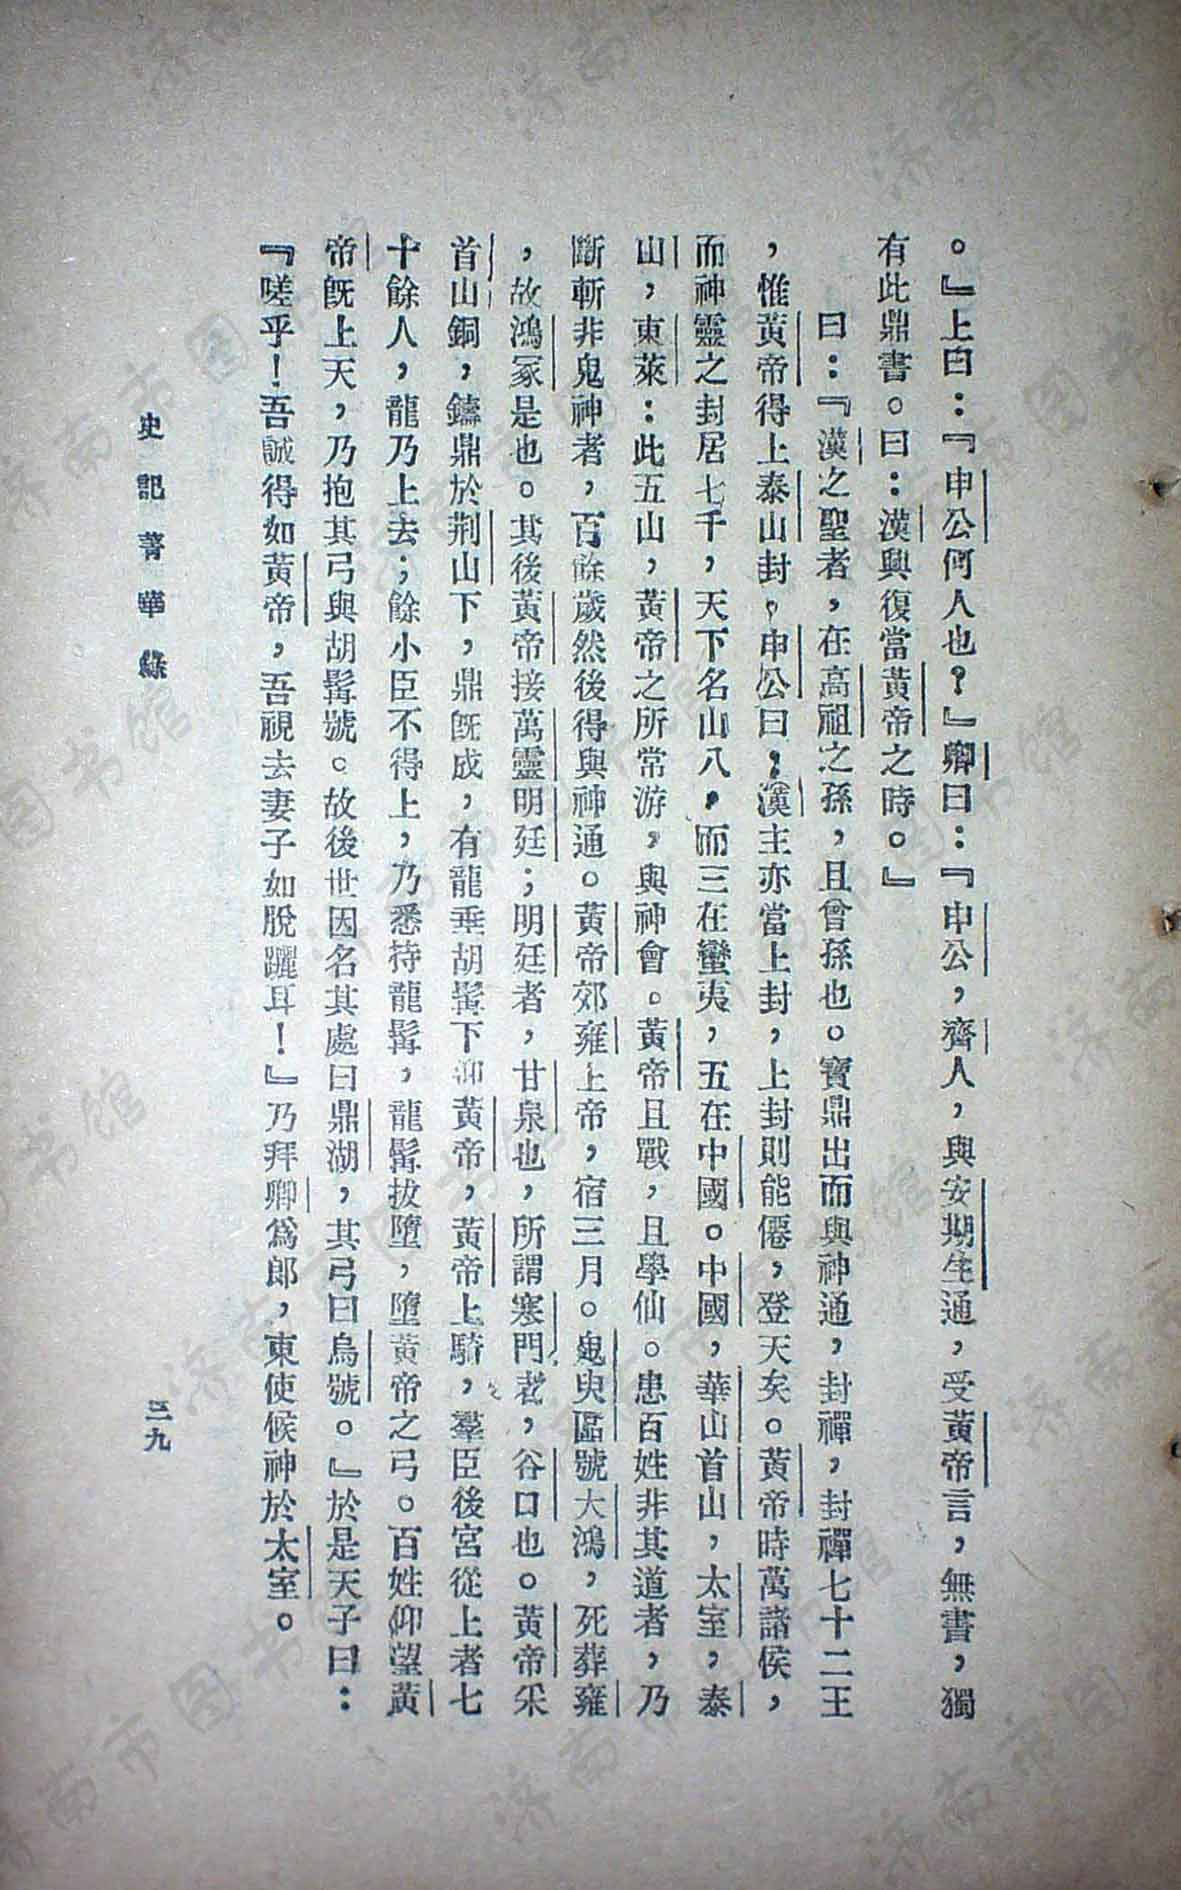 。』上曰：『申公何人也？』卿曰：『申公，齊人，與安期生通，受黃帝言，無書，獨
有此鼎書。曰：漢興復當黃帝之時。』
曰：『漢之聖者，在高祖之孫，且曾孫也。寶鼎出而與神通，封禪，封禪七十二王
，惟黃帝得上泰山封，申公曰，漢主亦當上封，上封則能僊，登天矣。黃帝時萬諸侯，
而神靈之封居七千，天下名山八，而三在蠻夷，五在中國。中國，華山首山，太室，泰
山，東萊：此五山，黃帝之所常游，與神會。黃帝且戰，且學仙。患百姓非其道者，乃
斷斬非鬼神者，百餘歲然後得與神通。黃帝郊雍上帝，宿三月。鬼臾區號大鴻，死葬雍
，故鴻冢是也。其後黃帝接萬靈明廷；明廷者，甘泉也，所謂寒門者，谷口也。黃帝采
首山銅，鑄鼎於荆山下，鼎既成，有龍垂胡髯下迎黃帝，黃帝上騎，羣臣後宮從上者七
十餘人，龍乃上去；餘小臣不得上，乃悉持龍髯，龍髯拔墮，墮黃帝之弓。百姓仰望黃
帝既上天，乃抱其弓與胡髯號。故後世因名其處曰鼎湖，其弓曰烏號。』於是天子曰：
『嗟乎！吾誠得如黃帝，吾視去妻子如脫躧耳！』乃拜卿爲郎，東使候神於太室。
史記菁華錄
二九
济南市图书馆